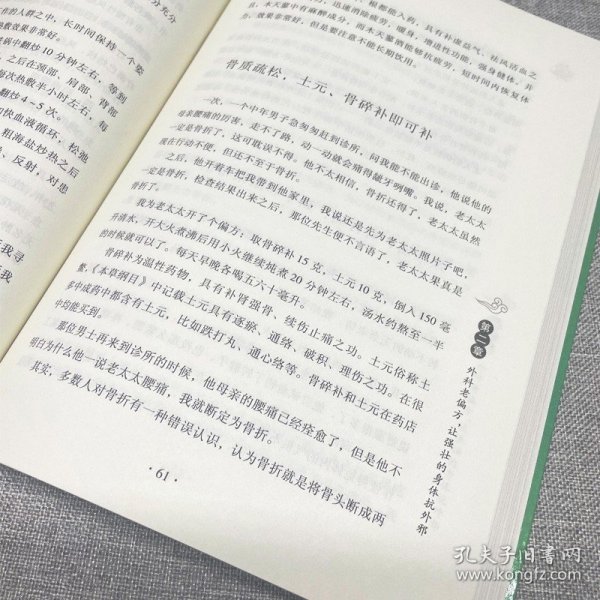 工作的人群之中，长时间保持一个姿
效果非常好。
锅中翻炒10分钟左右，等到
之后在颈部、肩部、背部
每次热敷半小时左右，每
翻炒4～5次。
加快血液循环，松弛
粗海盐炒热之后
反射，对患
无我寻
我
根都能入药，具有补虚益气、祛风活血之
迅速消除疲劳，暖身，增进性功能，强身健体，并
且，木天蓼中有麻醉成分，而木天蓼酒能够抗疲劳，短时间内恢复体
力，效果非常好。但是要注意不能长期饮用。
骨质疏松，土元、骨碎补即可补
一次，一个中年男子急匆匆赶到诊所，问我能不能出诊，他说他的
母亲腰痛的厉害，走不了路，动一动就会痛得龇牙咧嘴。我说，老太太
一定是骨折了，这可耽误不得。他不太相信，骨折还得了，老太太虽然
现在行动不便，但还不至于骨折。
之后，他开着车把我带到他家里，我说还是先为老太太照片子吧，
一定是骨折，检查结果出来之后，那位先生便不言语了，老太太果真是
骨折了。
我为老太太开了个偏方：取骨碎补15克，土元10克，倒入150毫
升清水，开大火煮沸后用小火继续炖煮20分钟左右，汤水约熬至一半
的时候就可以了。每天早晚各喝五六十毫升。
骨碎补为温性药物，具有补肾强骨、续伤止痛之功。土元俗称土
鳖，《本草纲目》中记载土元具有逐瘀、通络、破积、理伤之功。在很
多中成药中都含有土元，比如跌打丸、通心络等。骨碎补和土元在药店
中均能买到。
那位男士再来到诊所的时候，他母亲的腰痛已经痊愈了，但是他不
明白为什么他一说老太太腰痛，我就断定为骨折。
其实，多数人对骨折有一种错误认识，认为骨折就是将骨头断成两
·61·
第二章
外科老偏方，让强壮的身体抗外邪
孔夫子旧书网
www.kongfz.com